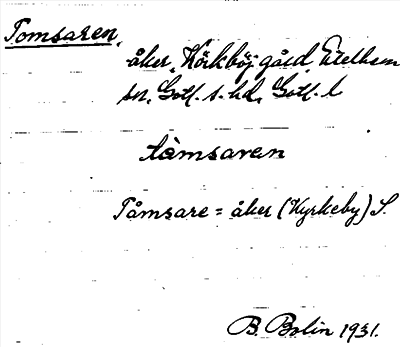 Tomsaren,
åker, Körkböj gård, Etelhem
sn, Gotl. s. hd, Gotl. l
tåmsaren
Tåmsare = åker (Kyrkeby) S.
B. Bolin 1931.